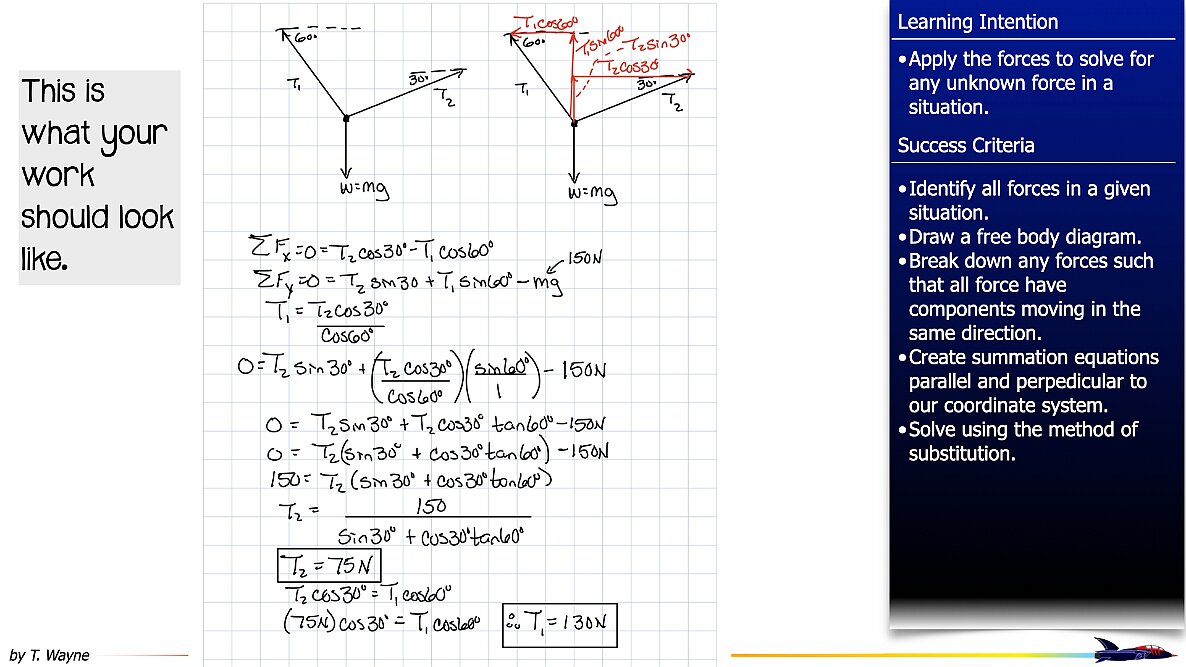 This is
what your
work
should look
like.
60°
T₁
30°
T₂
w=mg
T₁cos60°
60°
T₁sin60°
T₂sin30°
T₂cos30
T₁
30°
T₂
w=mg
ΣFₓ=0=T₂cos30°-T₁cos60°
150N
ΣFᵧ=0=T₂sin30+T₁sin60°-mg
T₁=T₂cos30°
cos60°
0=T₂sin30°+(T₂cos30°/cos60°)(sin60°/1)-150N
0= T₂sin30°+T₂cos30° tan60°-150N
0= T₂(sin30° + cos30°tan60°)-150N
150= T₂(sin30° + cos30°tan60°)
T₂= 150
sin30° + cos30°tan60°
T₂=75N
T₂cos30°=T₁cos60°
(75N)cos30°=T₁cos60°
∴T₁=130N
Learning Intention
•Apply the forces to solve for
any unknown force in a
situation.
Success Criteria
•Identify all forces in a given
situation.
•Draw a free body diagram.
•Break down any forces such
that all force have
components moving in the
same direction.
•Create summation equations
parallel and perpedicular to
our coordinate system.
•Solve using the method of
substitution.
by T. Wayne